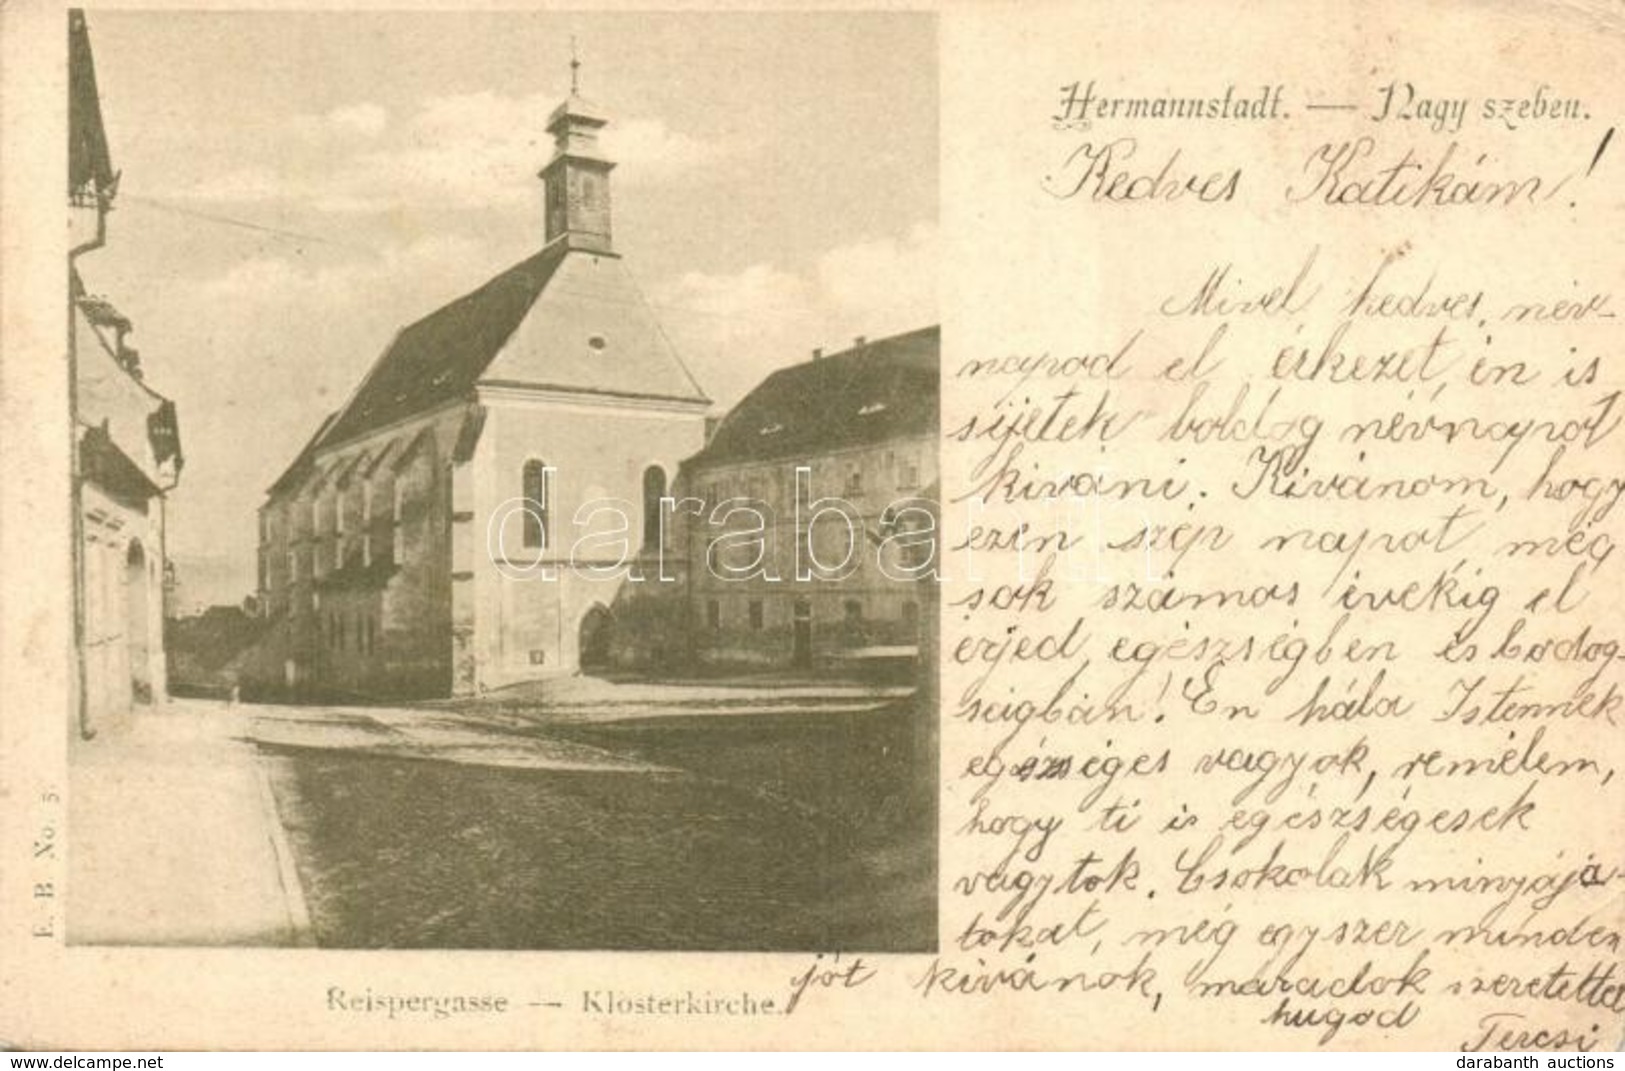 Hermannstadt. — Nagy szeben.
Kedves Katikám!
Mivel kedves, név-
napod el érkezet, én is
sijetek boldog névnapot
kiváni. Kivánom, hogy
ezen szép napot, még
sok számos évekig el
érjed, egészségben és bodog-
ságban! Én hála Istennek
egészséges vagyok, remélem,
hogy ti is egészségesek
vagytok. Csokolak minyája-
tokat, még egyszer minden
jót kivánok, maradok szeretettel
hugod
Tercsi
E. B. No. 5
Reispergasse — Klosterkirche.
darabanth
www.delcampe.net
darabanth auctions